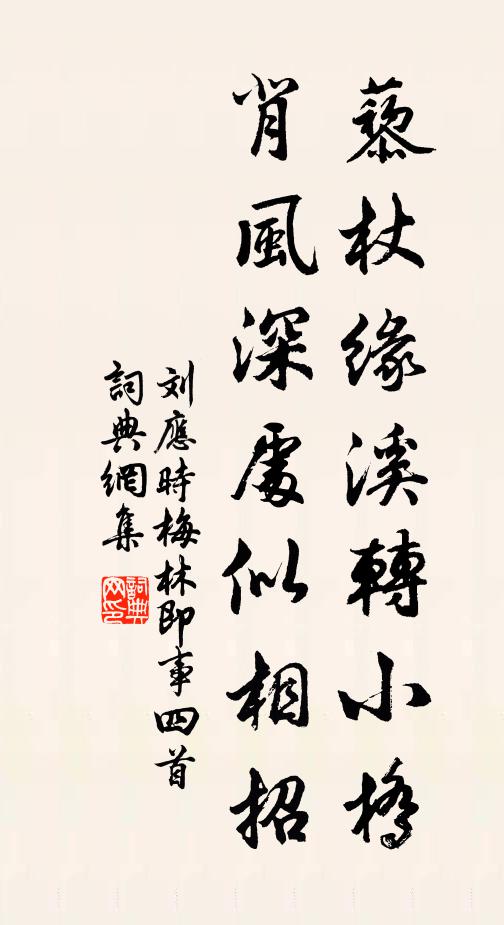 藜杖緣溪轉小橋
背風深處似相招
刘應時梅林即事四首
詞典網集
詞典網印